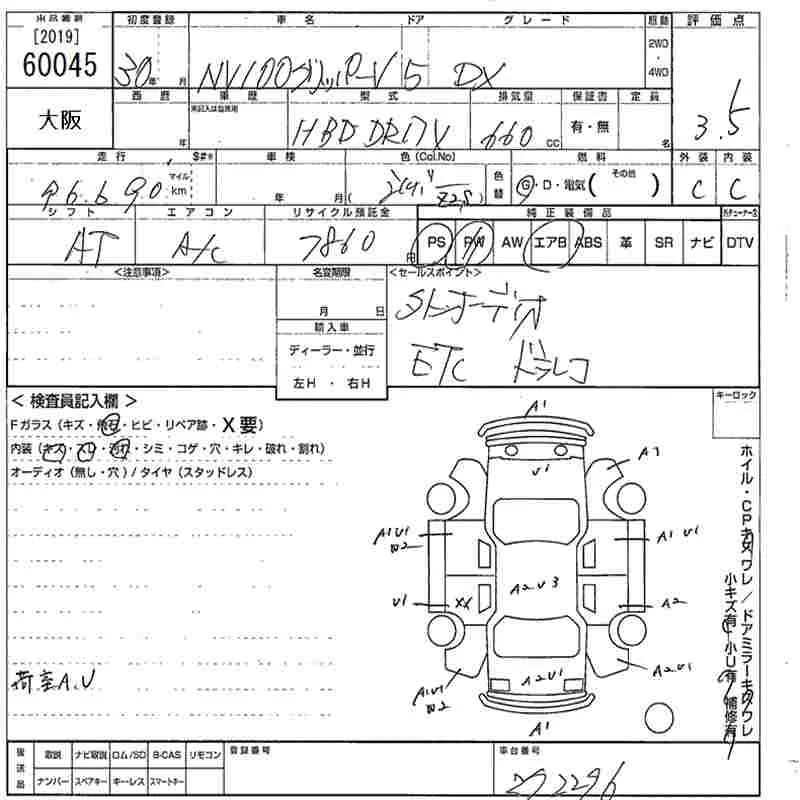 出品番号 初度登録 車名 ドア グレード 駆動 評価点
[2019]
60045 30年 月 NV100クリッパーV 5 DX 2WD・4WD 3.5
大阪 西暦 車歴 型式 排気量 保証書 定員
未記入は自家用
年 HBD DR17V 660cc 有・無 名
走行 $#* 車検 色(Col.No) 燃料 外装 内装
マイル km 年 月 色替 Ⓖ・D・電気( その他 ) C C
シフト エアコン リサイクル預託金 純正装備品
AT A/C 7860円 PS PW AW エアB ABS 革 SR ナビ DTV
<注意事項> 名変期限 <セールスポイント>
月 日
輸入車
ディーラー・並行 ETC ドラレコ
左H ・ 右H
< 検査員記入欄 > キーロック
Fガラス(キズ・飛石・ヒビ・リペア跡・X要)
内装(キズ・スレ・汚れ・シミ・コゲ・穴・キレ・破れ・割れ)
オーディオ(無し・穴)/タイヤ(スタッドレス)
A1
V1
A1
A1V1
W2
A1 V1
A2V3
V1 XX A2
荷室A.V
A1V1
W2
A2V1
A2V1
A1
ホイル・CPキズ ワレ/ドアミラーキズ ワレ
小キズ有 小U有 補修有
後送品 取説 ナビ取説 ロム/SD B-CAS リモコン 登録番号 車台番号
ナンバー スペアキー キーレス スマートキー 272296